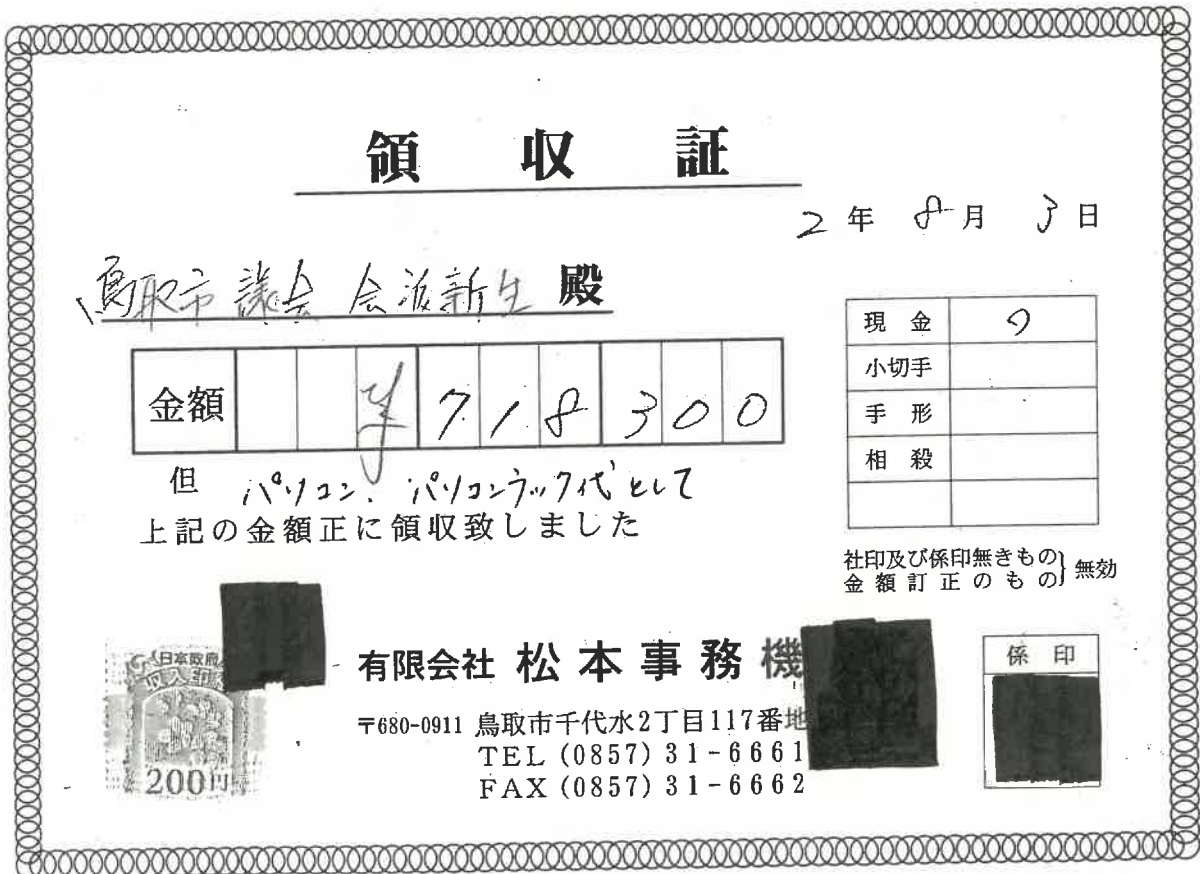 領収証
2年 8月 3日
鳥取市議会 会派新生 殿
金額 ¥718300
但 パソコン、パソコンラック代として
上記の金額正に領収致しました
現金
小切手
手形
相殺
社印及び係印無きもの
金額訂正のもの}無効
日本政府
収入印
200円
有限会社 松本事務機
〒680-0911 鳥取市千代水2丁目117番地
TEL (0857) 31-6661
FAX (0857) 31-6662
係印